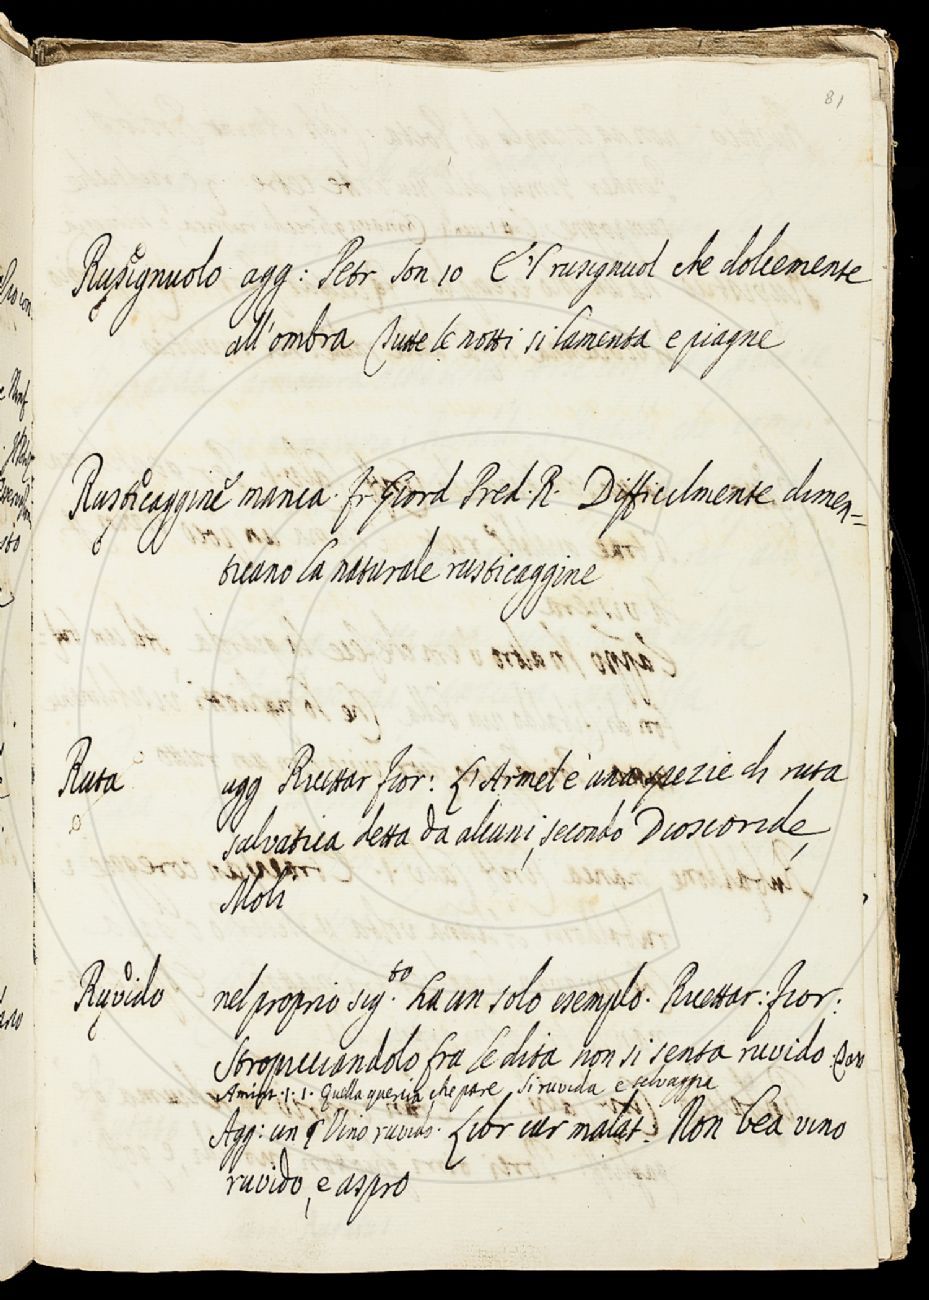 81
Rusignuolo agg: Petr Son 10 E'l rusignuol che dolcemente
all'ombra Tutte le notti si lamenta e piagne
Rusticaggine manca. fr Giord Pred. R. Difficilmente dimen=
ticano la naturale rusticaggine
Ruta agg Ricettar fior: L'Armel è una spezie di ruta
salvatica detta da alcuni, secondo Dioscoride,
Moli
Ruvido nel proprio sig.to ha un solo esempio. Ricettar: fior:
Stropicciandolo fra le dita non si senta ruvido
Amint. 1. 1. Quella quercia che pare Si ruvida e selvaggia
Agg: un § Vino ruvido. Libr cur malat. Non bea vino
ruvido, e aspro